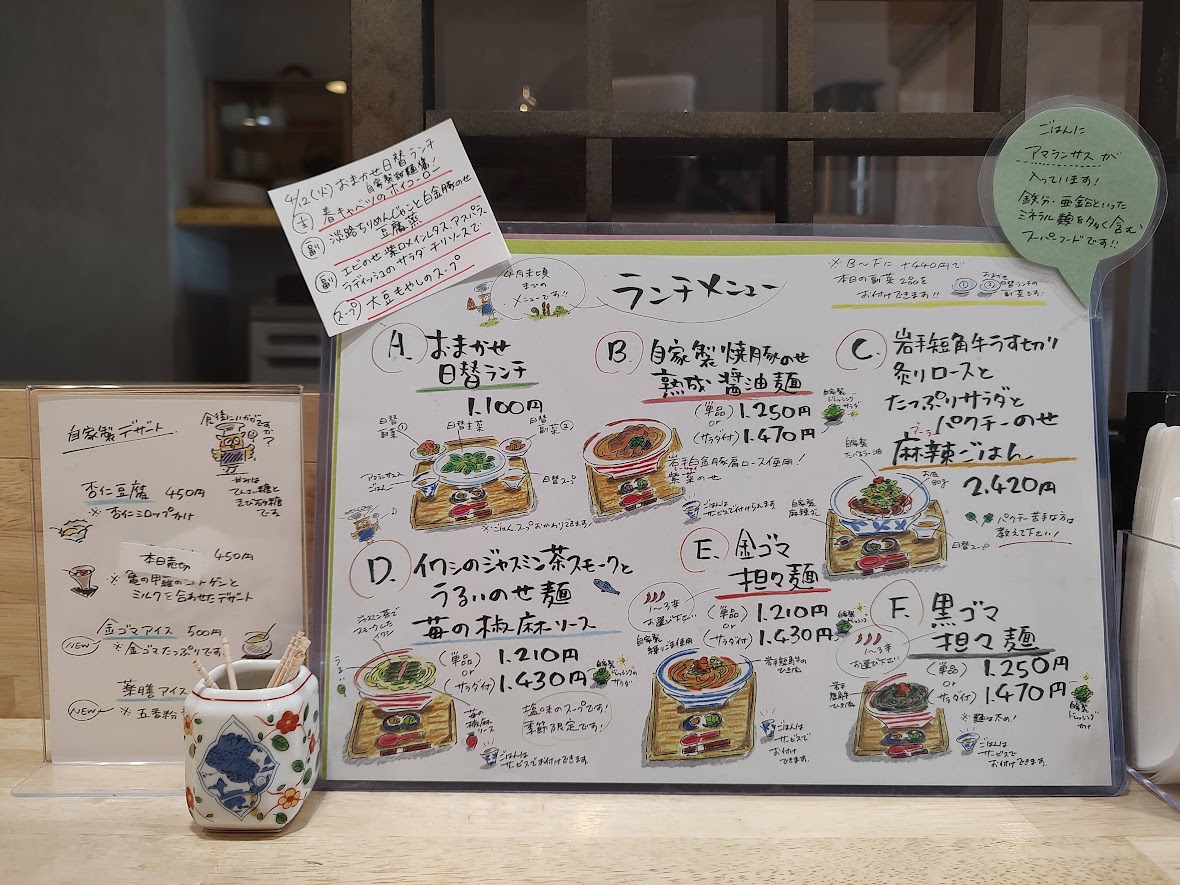 4/2(火)おまかせ日替ランチ
自家製甜麺醤!
主 春キャベツのホイコーロー
副 淡路ちりめんじゃこと白金豚のせ
豆腐菜
副 エビのせ 紫ロメインレタス、アスパラ、
ラディッシュのサラダ チリソースで
スープ 大豆もやしのスープ
ごはんに
アマランサスが
入っています!
鉄分・亜鉛といった
ミネラル類を多く含む
スーパーフードです!!
4月末頃
までの
メニューです!!
ランチメニュー
※B〜Fに+440円で
本日の副菜2品を
お付けできます!!
①②おまかせ
日替ランチの
副菜です!
A. おまかせ
日替ランチ
1.100円
日替
副菜①
日替主菜
日替
副菜②
アマランサス入
ごはん
日替スープ
※ごはん、スープおかわりできます!
B. 自家製焼豚のせ
熟成醤油麺
(単品) 1.250円
or
(サラダ付) 1.470円
自家製
ドレッシング
サラダ
岩手白金豚肩ロース使用!
紫菜のせ
ごはんは
サービスで付けられます
C. 岩手短角牛うす切り
炙りロースと
たっぷりサラダと
パクチーのせ
マーラー
麻辣ごはん
お肉
80g
2.420円
自家製
たべるラー油
自家製
麻辣だれ
日替スープ
パクチー苦手な方は
教えて下さい!
D. イワシのジャスミン茶スモークと
うるいのせ麺
苺の椒麻ソース
ジャスミン茶で
スモークした
イワシ
うるい
(単品) 1.210円
or
(サラダ付) 1.430円
自家製
ドレッシングの
サラダ
苺の
椒麻
ソース
塩味のスープです!
季節限定です!
ごはんは
サービスでお付けできます。
E. 金ゴマ
担々麺
1〜3辛
お選び下さい
(単品) 1.210円
or
(サラダ付) 1.430円
自家製
ドレッシング
自家製
練りごま使用
岩手短角牛の
ひき肉
ごはんは
サービスで
お付け
できます。
F. 黒ゴマ
担々麺
1〜3辛
お選び下さい
(単品) 1.250円
or
(サラダ付) 1.470円
自家製
ドレッシング
かけ
岩手
短角牛
ひき肉
※麺は太め!
ごはんは
サービスで
お付けできます.
自家製デザート
食後にいかがです
か?
甘みは
てんさい糖と
きび砂糖
です
杏仁豆腐 450円
※杏仁シロップかけ
本日売切 450円
※亀の甲羅のコラーゲンと
ミルクを合わせたデザート
金ゴマアイス 500円
NEW ※金ゴマたっぷりです
薬膳アイス
NEW ※五香粉